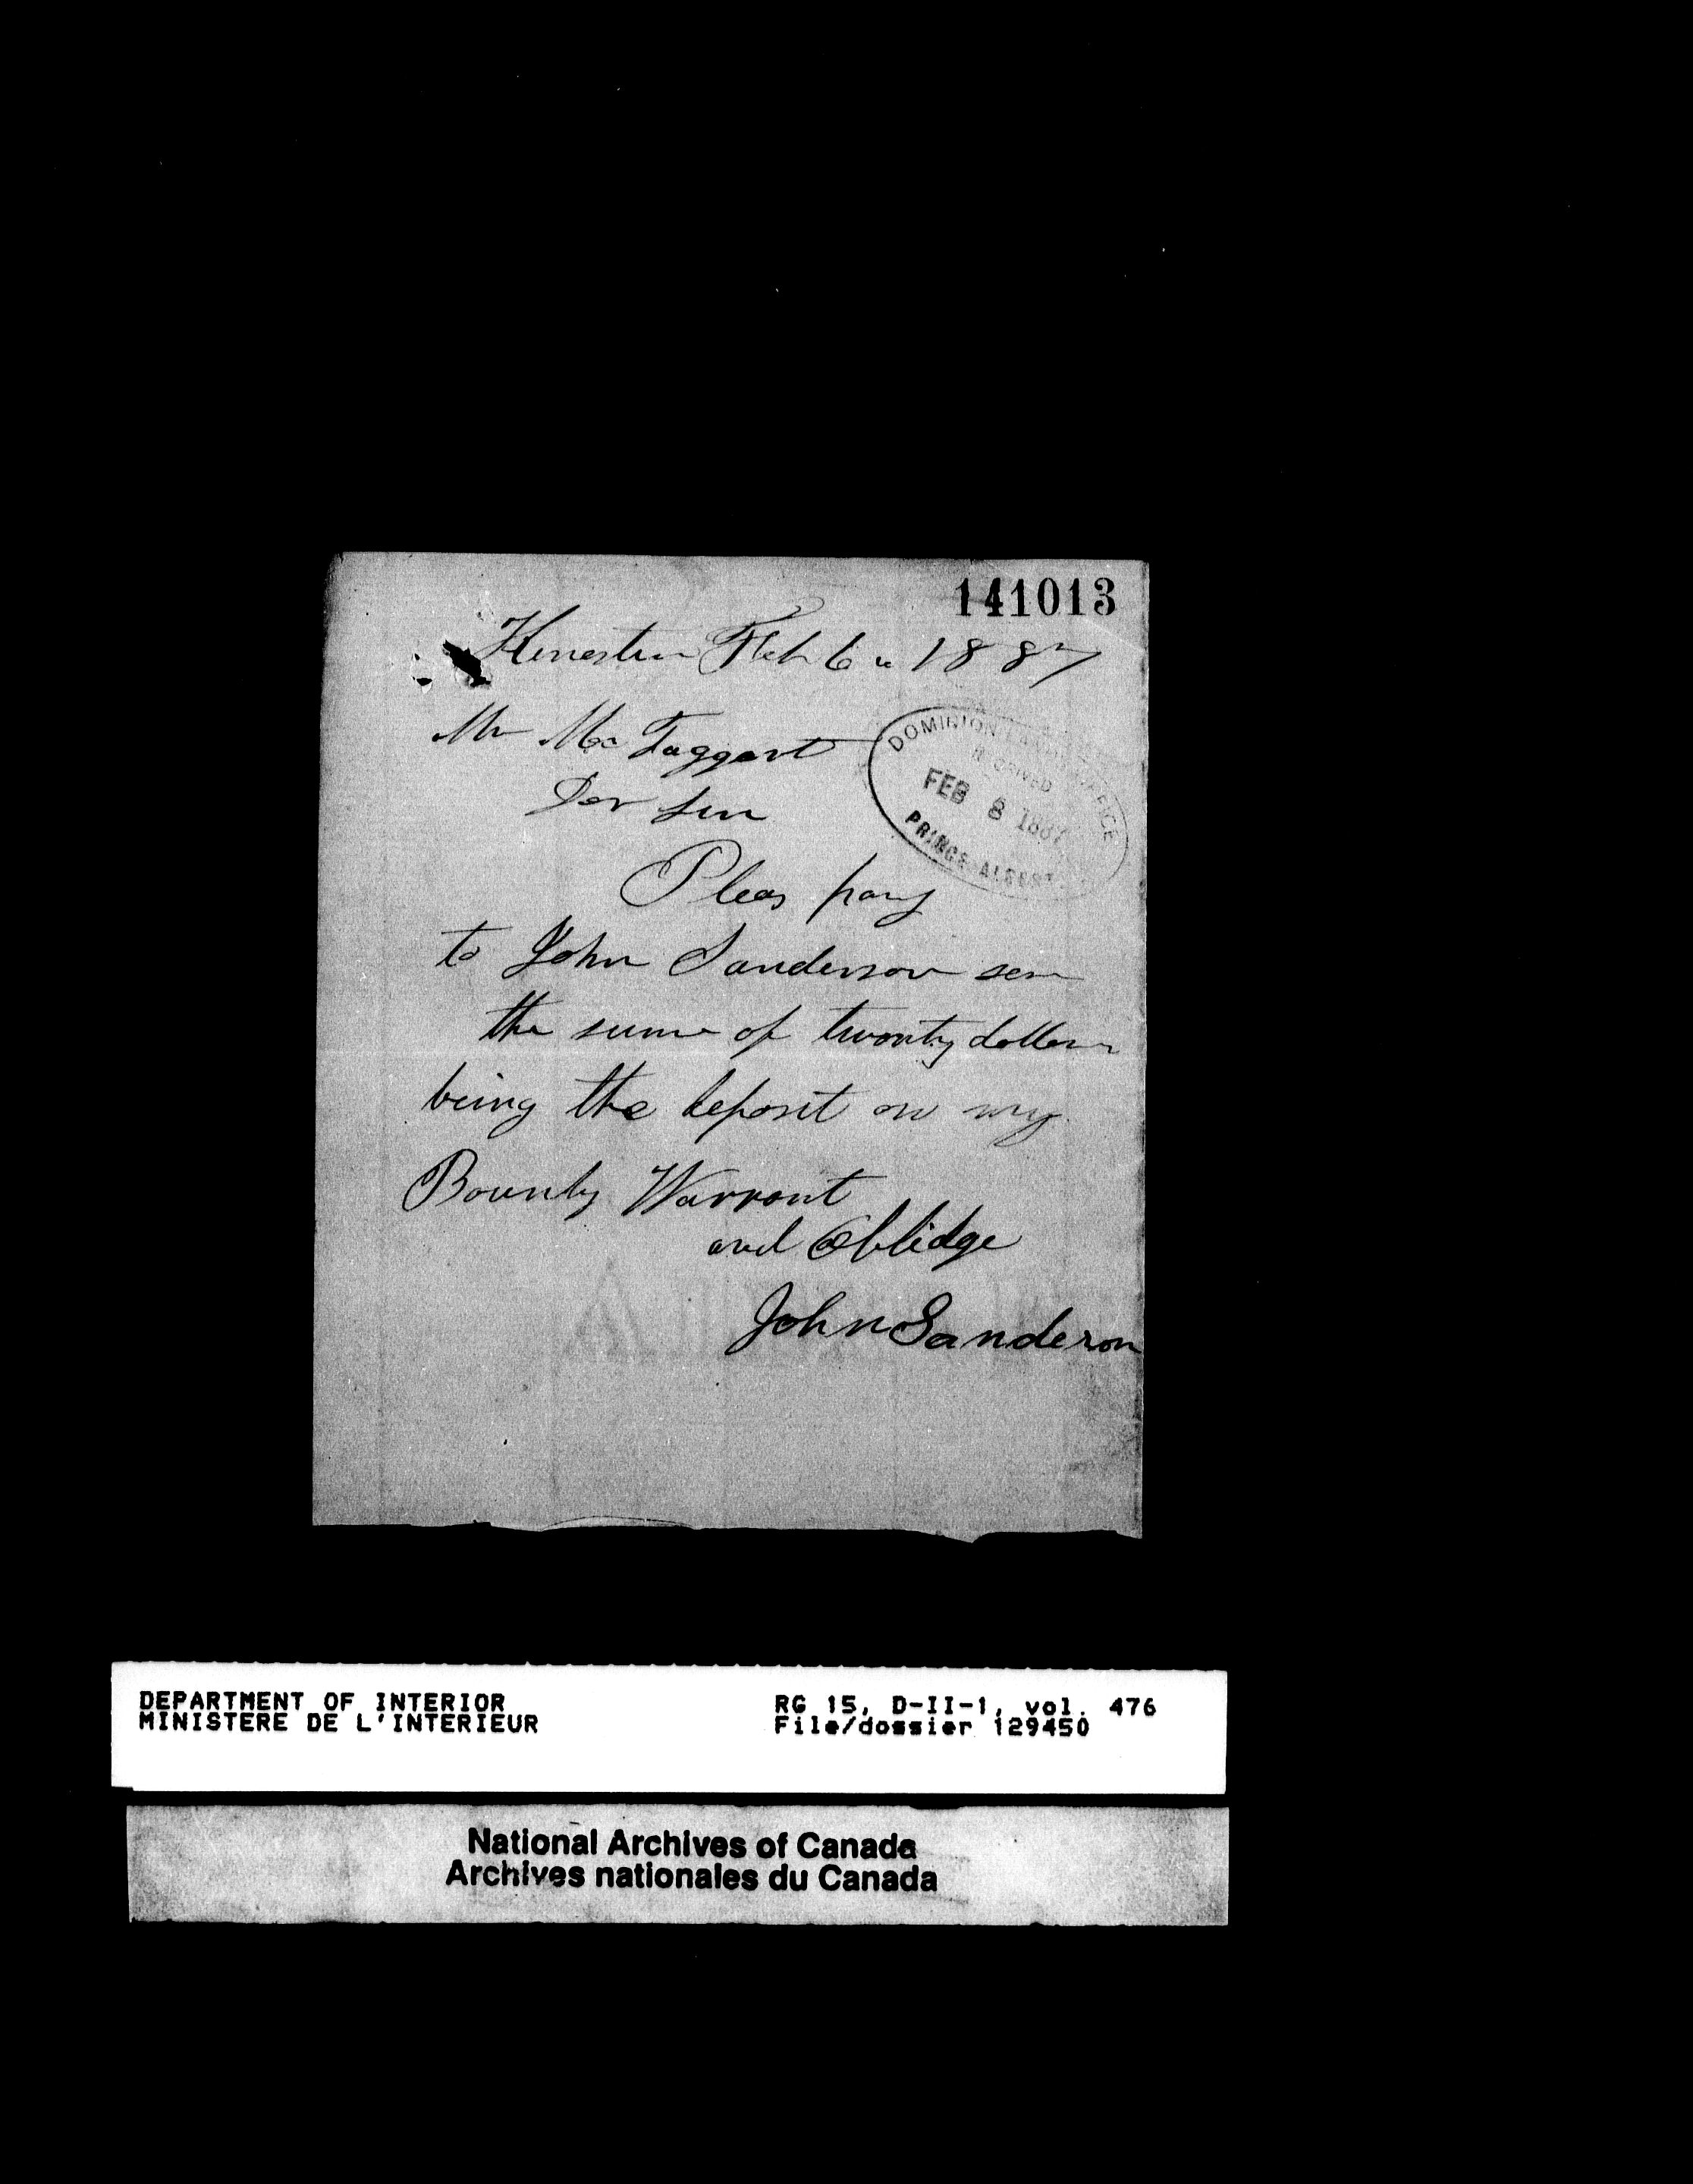 141013
Kinestin Feb 6 u 1887
DOMINION LANDS OFFICE
RECEIVED
FEB 8 1887
PRINCE ALBERT
Mr Mc Taggart
Der Sir
Pleas pay
to John Sanderson sen
the sume of twonty dollars
being the deposit on my
Bounty Warrant
and Oblidge
John Sanderson
DEPARTMENT OF INTERIOR
MINISTERE DE L'INTERIEUR
RG 15, D-II-1, vol. 476
File/dossier 129450
National Archives of Canada
Archives nationales du Canada